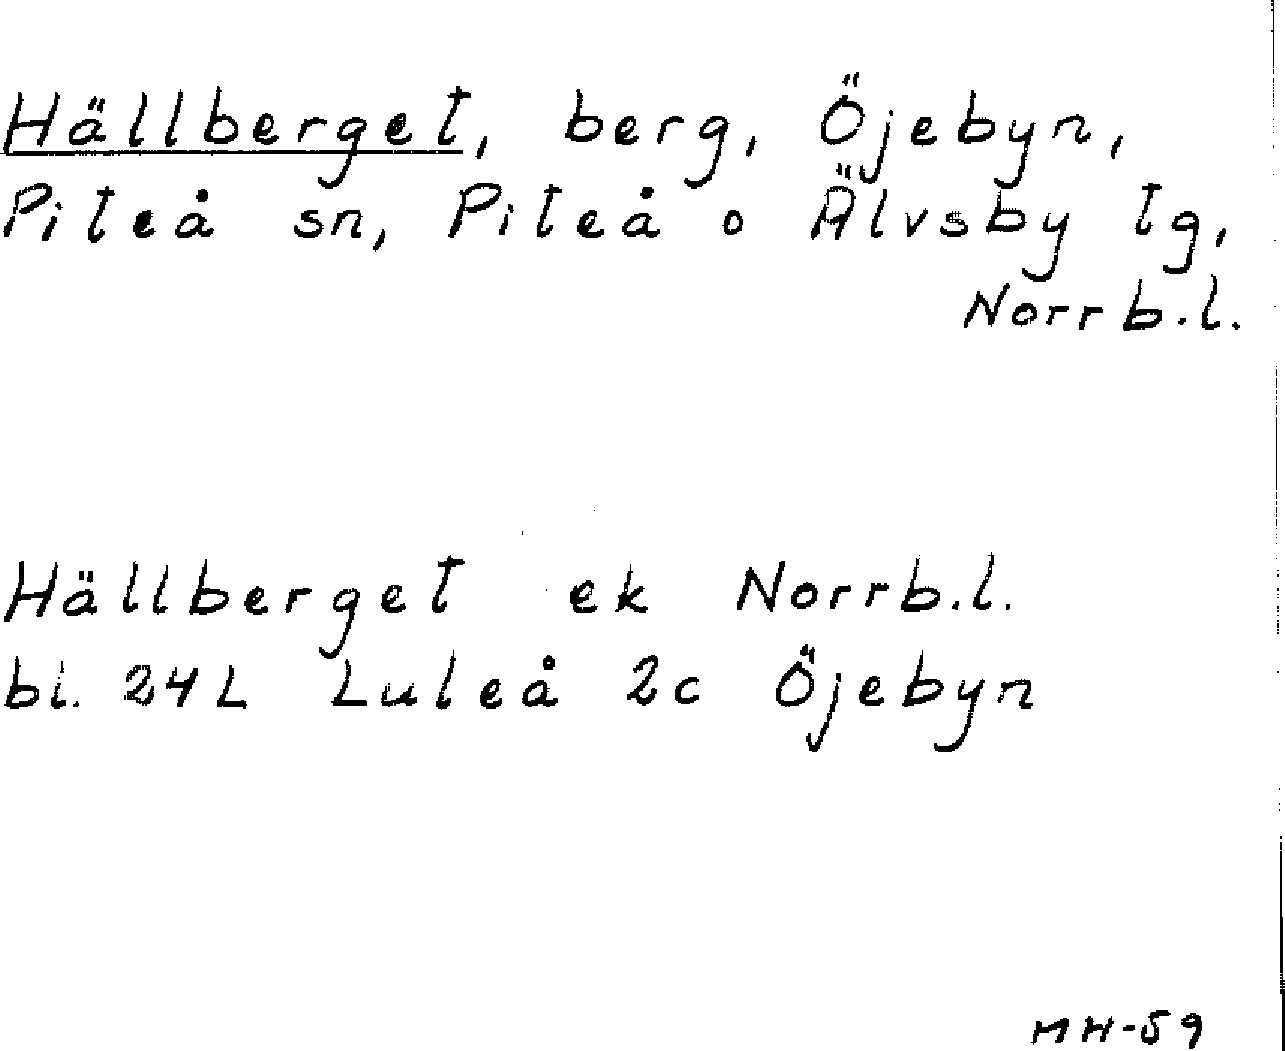 Hällberget, berg, Öjebyn,
Piteå sn, Piteå o Älvsby tg,
Norrb.l.
Hällberget ek Norrb.l.
bl. 24L Luleå 2c Öjebyn
MH-59